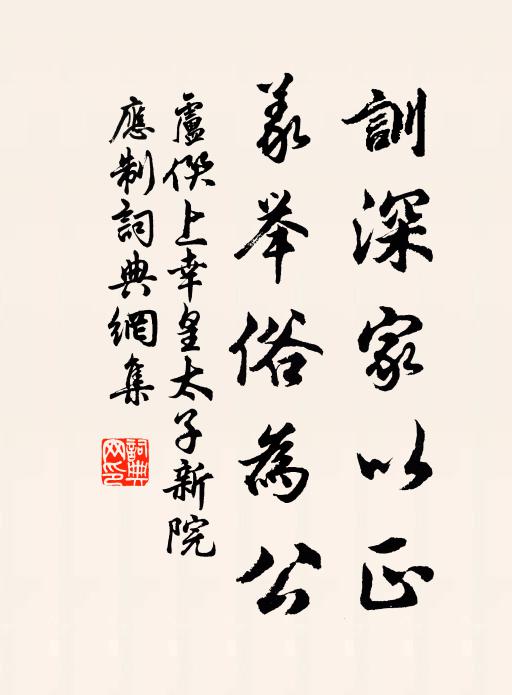 訓深家以正
義举俗為公
盧僎上幸皇太子新院
應制詞典網集
詞典网印